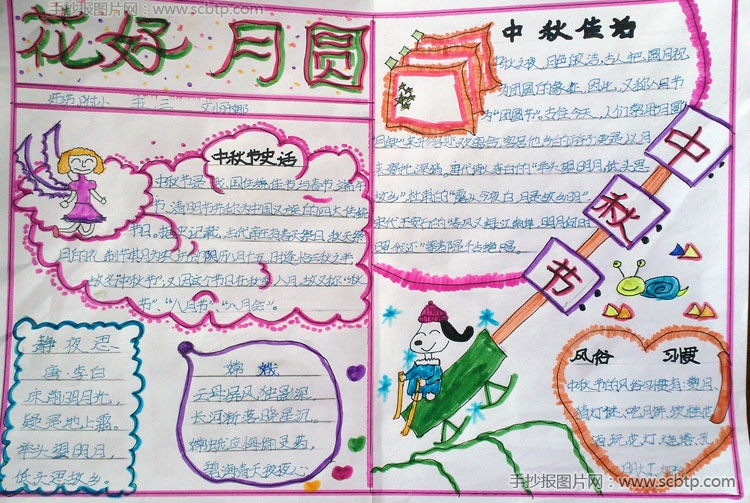 手抄报图片网 www.scbtp.com
花好月圆
附小 五 三
中秋节史话
中秋节是我国传统佳节与春节、端午
节、清明节并称为中国汉族的四大传统
节日。据史记载,古代帝王有春天祭日,秋天祭
月的礼制节期为农历的阴历八月十五,时逢恰三秋之半
故名"中秋节";又因这个节日在秋季八月,故又称"秋
节"、"八月节"、"八月会"。
静夜思
唐·李白
床前明月光,
疑是地上霜。
举头望明月,
低头思故乡。
嫦娥
云母屏风烛影深,
长河渐落晓星沉。
嫦娥应悔偷灵药,
碧海青天夜夜心
中秋佳话
中秋之夜,月色皎洁,古人把圆月视
为团圆的象征,因此,又称八月
为"团圆节"。古往今来,人们常用"月圆
来寄托深情。唐代诗人李白的"举头望明月,低头思
故乡",杜甫的"露从今夜白,月是故乡明"
宋代王安石的"春风又绿江南岸,明月何时
照我还"等都是千古绝唱。
中秋节
风俗习惯
中秋节的风俗习惯有:赏月、
吃月饼、
玩花灯、烧塔、
手抄报图片网:www.scbtp.com